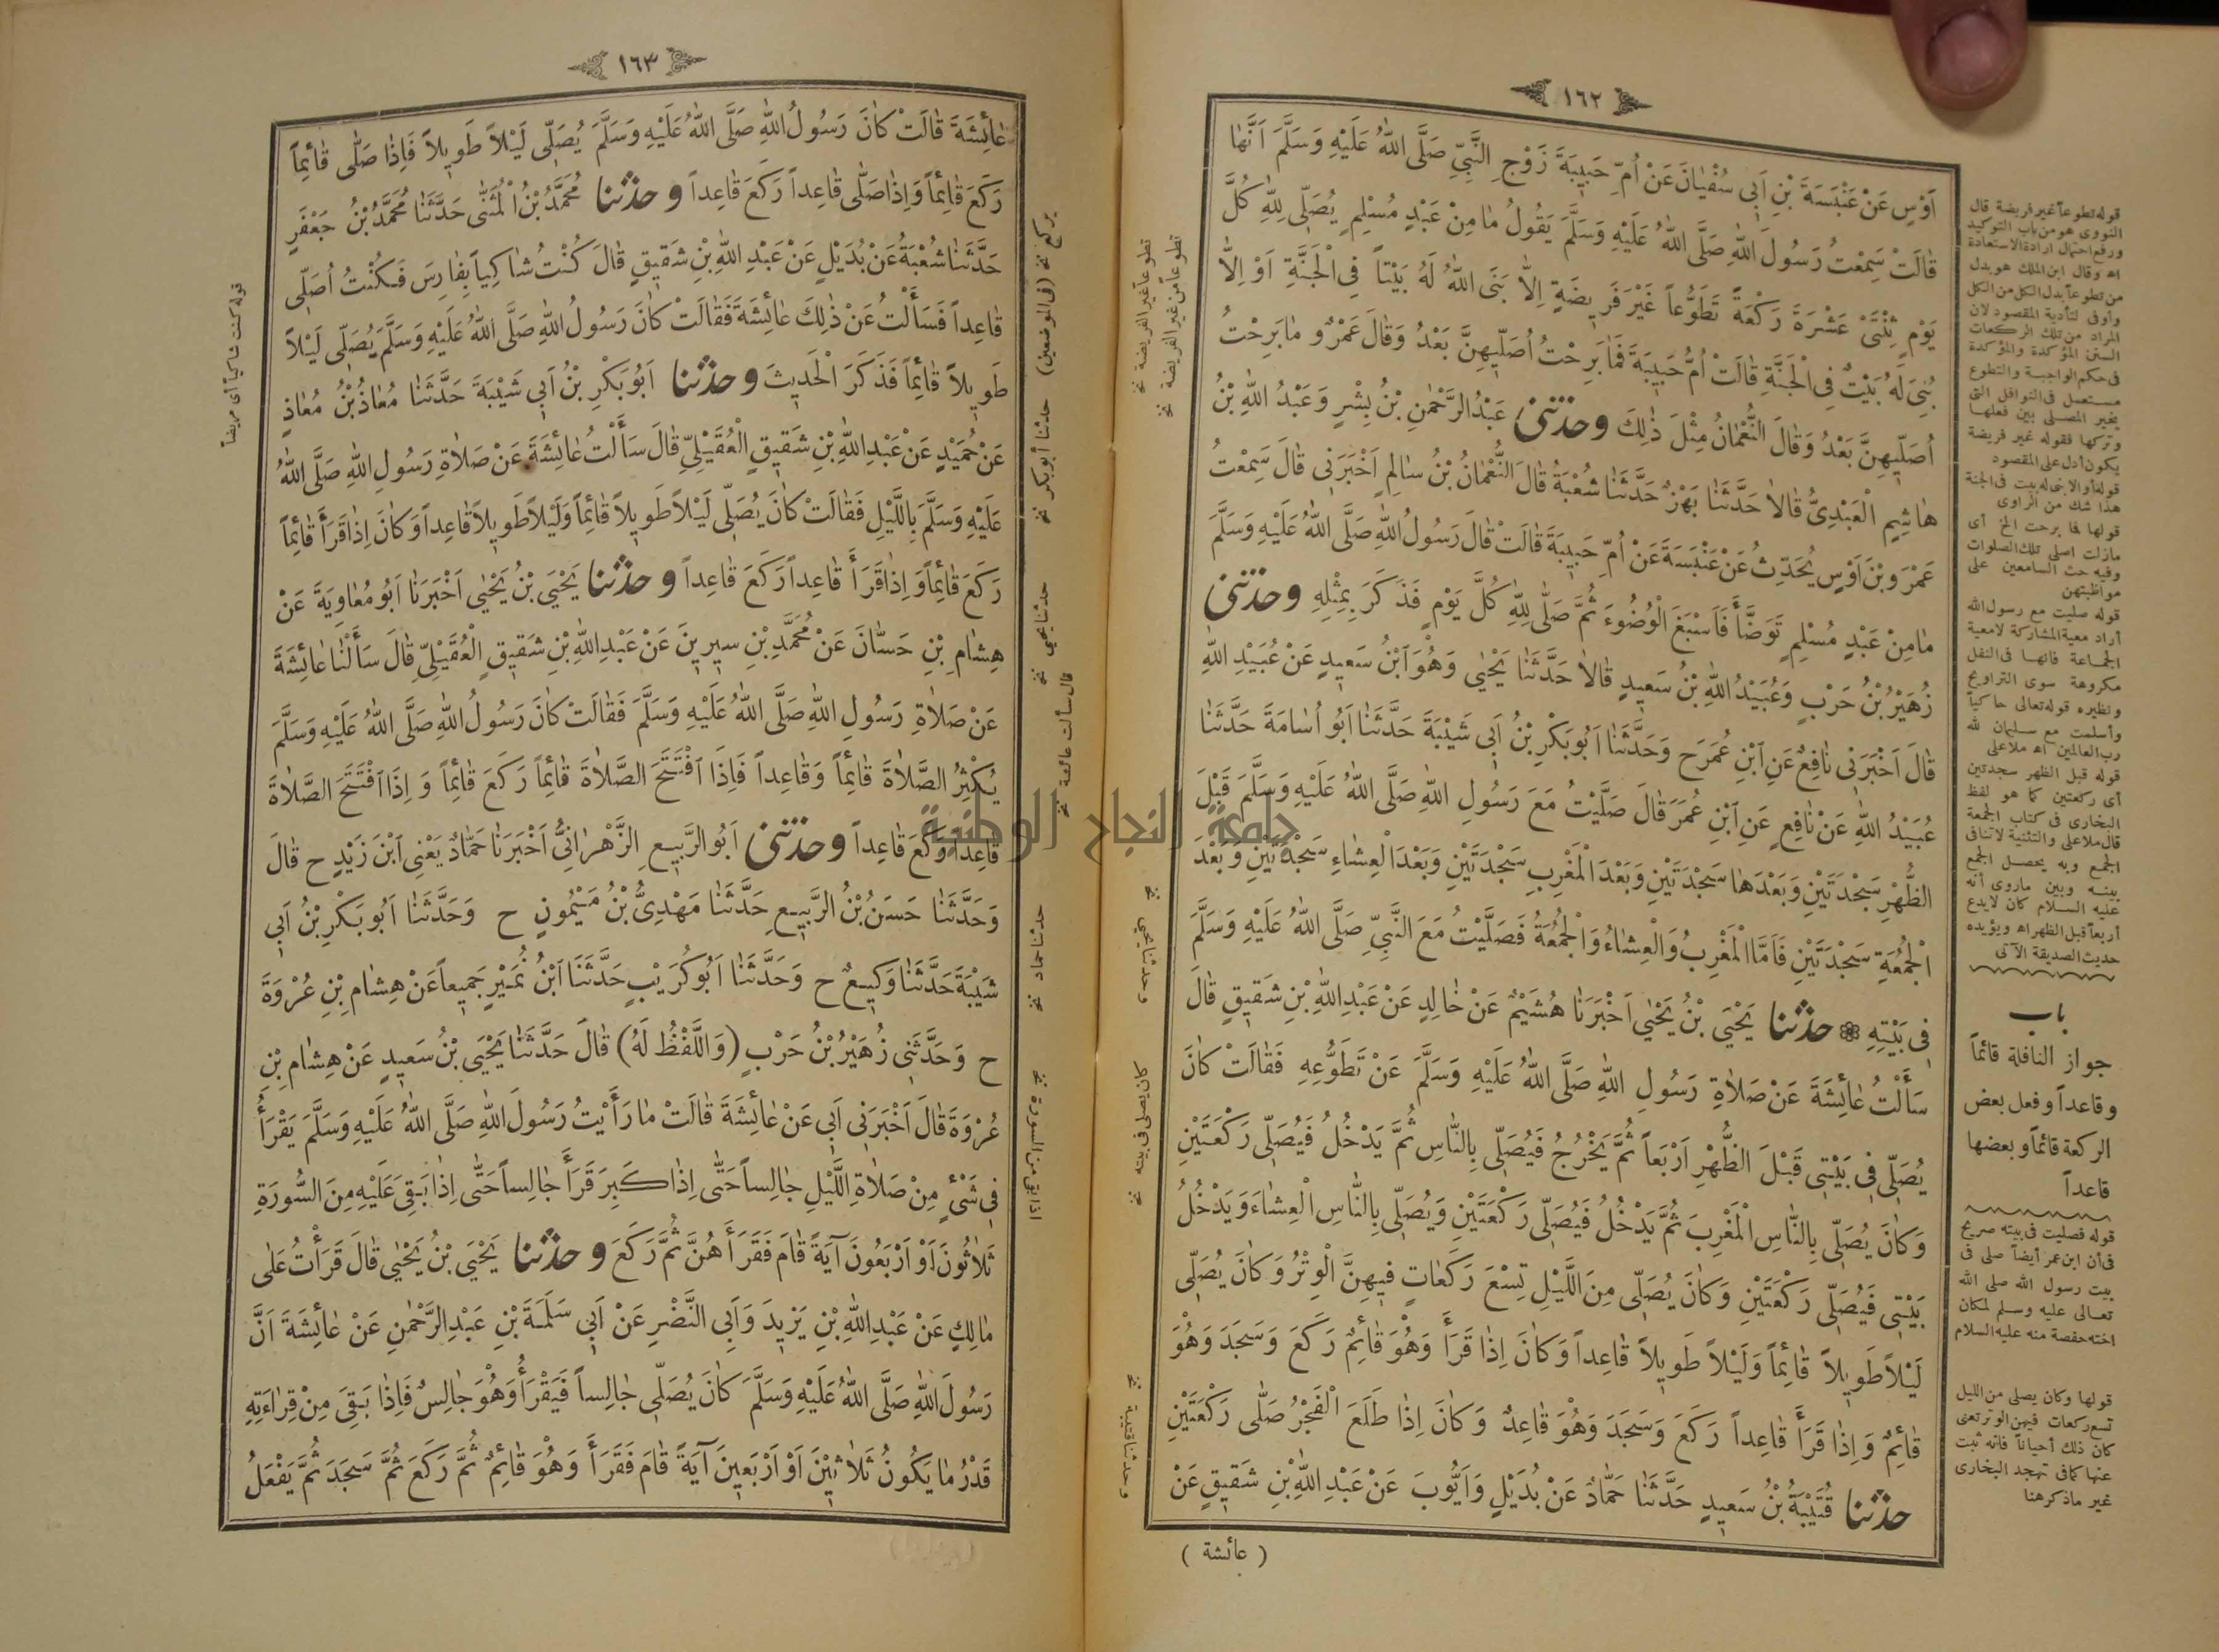 ١٦٢
اَوْسٍ عَنْ عَنْبَسَةَ بْنِ اَبِى سُفْيٰانَ عَنْ اُمِّ حَبِيبَةَ زَوْجِ النَّبِىِّ صَلَّى اللهُ عَلَيْهِ وَسَلَّمَ اَنَّهٰا
قٰالَتْ سَمِعْتُ رَسُولَ اللهِ صَلَّى اللهُ عَلَيْهِ وَسَلَّمَ يَقُولُ مٰا مِنْ عَبْدٍ مُسْلِمٍ يُصَلِّى لِلّٰهِ كُلَّ
يَوْمٍ ثِنْتَىْ عَشْرَةَ رَكْعَةً تَطَوُّعاً غَيْرَ فَرِيضَةٍ اِلاّٰ بَنَى اللهُ لَهُ بَيْتاً فِى الْجَنَّةِ اَوْ اِلاّٰ
بُنِىَ لَهُ بَيْتٌ فِى الْجَنَّةِ قٰالَتْ اُمُّ حَبِيبَةَ فَمٰا بَرِحْتُ اُصَلِّيهِنَّ بَعْدُ وَقٰالَ عَمْرٌو مٰا بَرِحْتُ
اُصَلِّيهِنَّ بَعْدُ وَقٰالَ النُّعْمٰانُ مِثْلَ ذٰلِكَ وحدثنى عَبْدُ الرَّحْمٰنِ بْنُ بِشْرٍ وَعَبْدُ اللهِ بْنُ
هٰاشِمٍ الْعَبْدِىُّ قٰالاٰ حَدَّثَنٰا بَهْزٌ حَدَّثَنٰا شُعْبَةُ قٰالَ النُّعْمٰانُ بْنُ سٰالِمٍ اَخْبَرَنِى قٰالَ سَمِعْتُ
عَمْرَو بْنَ اَوْسٍ يُحَدِّثُ عَنْ عَنْبَسَةَ عَنْ اُمِّ حَبِيبَةَ قٰالَتْ قٰالَ رَسُولُ اللهِ صَلَّى اللهُ عَلَيْهِ وَسَلَّمَ
مٰا مِنْ عَبْدٍ مُسْلِمٍ تَوَضَّأَ فَاَسْبَغَ الْوُضُوءَ ثُمَّ صَلّٰى لِلّٰهِ كُلَّ يَوْمٍ فَذَكَرَ بِمِثْلِهِ وحدثنى
زُهَيْرُ بْنُ حَرْبٍ وَعُبَيْدُ اللهِ بْنُ سَعِيدٍ قٰالاٰ حَدَّثَنٰا يَحْيٰى وَهُوَ اَبْنُ سَعِيدٍ عَنْ عُبَيْدِ اللهِ
قٰالَ اَخْبَرَنِى نٰافِعٌ عَنِ اَبْنِ عُمَرَ ح وَحَدَّثَنٰا اَبُو بَكْرِ بْنُ اَبِى شَيْبَةَ حَدَّثَنٰا اَبُو اُسٰامَةَ حَدَّثَنٰا
عُبَيْدُ اللهِ عَنْ نٰافِعٍ عَنِ اَبْنِ عُمَرَ قٰالَ صَلَّيْتُ مَعَ رَسُولِ اللهِ صَلَّى اللهُ عَلَيْهِ وَسَلَّمَ قَبْلَ
الظُّهْرِ سَجْدَتَيْنِ وَبَعْدَهٰا سَجْدَتَيْنِ وَبَعْدَ الْمَغْرِبِ سَجْدَتَيْنِ وَبَعْدَ الْعِشٰاءِ سَجْدَتَيْنِ وَبَعْدَ
الْجُمُعَةِ سَجْدَتَيْنِ فَاَمَّا الْمَغْرِبُ وَالْعِشٰاءُ وَالْجُمُعَةُ فَصَلَّيْتُ مَعَ النَّبِىِّ صَلَّى اللهُ عَلَيْهِ وَسَلَّمَ
فِى بَيْتِهِ ❁ حدثنا يَحْيَى بْنُ يَحْيٰى اَخْبَرَنٰا هُشَيْمٌ عَنْ خٰالِدٍ عَنْ عَبْدِ اللهِ بْنِ شَقِيقٍ قٰالَ
سَأَلْتُ عٰائِشَةَ عَنْ صَلاٰةِ رَسُولِ اللهِ صَلَّى اللهُ عَلَيْهِ وَسَلَّمَ عَنْ تَطَوُّعِهِ فَقٰالَتْ كٰانَ
يُصَلِّى فِى بَيْتِى قَبْلَ الظُّهْرِ اَرْبَعاً ثُمَّ يَخْرُجُ فَيُصَلِّى بِالنّٰاسِ ثُمَّ يَدْخُلُ فَيُصَلِّى رَكْعَتَيْنِ
وَكٰانَ يُصَلِّى بِالنّٰاسِ الْمَغْرِبَ ثُمَّ يَدْخُلُ فَيُصَلِّى رَكْعَتَيْنِ وَيُصَلِّى بِالنّٰاسِ الْعِشٰاءَ وَيَدْخُلُ
بَيْتِى فَيُصَلِّى رَكْعَتَيْنِ وَكٰانَ يُصَلِّى مِنَ اللَّيْلِ تِسْعَ رَكَعٰاتٍ فِيهِنَّ الْوِتْرُ وَكٰانَ يُصَلِّى
لَيْلاً طَوِيلاً قٰائِماً وَلَيْلاً طَوِيلاً قٰاعِداً وَكٰانَ اِذٰا قَرَأَ وَهُوَ قٰائِمٌ رَكَعَ وَسَجَدَ وَهُوَ
قٰائِمٌ وَاِذٰا قَرَأَ قٰاعِداً رَكَعَ وَسَجَدَ وَهُوَ قٰاعِدٌ وَكٰانَ اِذٰا طَلَعَ الْفَجْرُ صَلّٰى رَكْعَتَيْنِ
حدثنا قُتَيْبَةُ بْنُ سَعِيدٍ حَدَّثَنٰا حَمّٰادٌ عَنْ بُدَيْلٍ وَاَيُّوبَ عَنْ عَبْدِ اللهِ بْنِ شَقِيقٍ عَنْ
( عائشة )
قوله تطوعاً غير فريضة قال
النووى هو من باب التوكيد
ورفع احتمال ارادة الاستعاذة
اه وقال ابن الملك هو بدل
من تطوعاً بدل الكل من الكل
وأوفى لتأدية المقصود لان
المراد من تلك الركعات
السنن المؤكدة والمؤكدة
فى حكم الواجبة والتطوع
مستعمل فى النوافل التى
يخير المصلى بين فعلها
وتركها فقوله غير فريضة
يكون أدل على المقصود
قوله أو الابنى له بيت فى الجنة
هذا شك من الراوى
قولها فما برحت الخ أى
مازلت اصلى تلك الصلوات
وفيه حث السامعين على
مواظبتهن
قوله صليت مع رسول الله
أراد معية المشاركة لا معية
الجماعة فانها فى النفل
مكروهة سوى التراويح
ونظيره قوله تعالى حاكياً
وأسلمت مع سليمان لله
رب العالمين اه ملا على
قوله قبل الظهر سجدتين
أى ركعتين كما هو لفظ
البخارى فى كتاب الجمعة
قال ملا على والتثنية لا تنافى
الجمع وبه يحصل الجمع
بينه وبين ماروى أنه
عليه السلام كان لا يدع
أربعاً قبل الظهر اه ويؤيده
حديث الصديقة الآتى
باب
جواز النافلة قائماً
وقاعداً وفعل بعض
الركعة قائماً وبعضها
قاعداً
قوله فصليت فى بيته صريح
فى أن ابن عمر أيضاً صلى فى
بيت رسول الله صلى الله
تعالى عليه وسلم لمكان
اخته حفصة منه عليه السلام
قولها وكان يصلى من الليل
تسع ركعات فيهن الوتر تعنى
كان ذلك أحياناً فانه ثبت
عنها كما فى تهجد البخارى
غير ماذكر هنا
تطوعاً غير الفريضة نخ
تطوعاً من غير الفريضة نخ
وحدثنا يحيى نخ
كان يصلى فى بيته نخ
وحدثنا قتيبة نخ
١٦٣
عٰائِشَةَ قٰالَتْ كٰانَ رَسُولُ اللهِ صَلَّى اللهُ عَلَيْهِ وَسَلَّمَ يُصَلِّى لَيْلاً طَوِيلاً فَاِذٰا صَلّٰى قٰائِماً
رَكَعَ قٰائِماً وَاِذٰا صَلّٰى قٰاعِداً رَكَعَ قٰاعِداً وحدثنا مُحَمَّدُ بْنُ الْمُثَنّٰى حَدَّثَنٰا مُحَمَّدُ بْنُ جَعْفَرٍ
حَدَّثَنٰا شُعْبَةُ عَنْ بُدَيْلٍ عَنْ عَبْدِ اللهِ بْنِ شَقِيقٍ قٰالَ كُنْتُ شٰاكِياً بِفٰارِسَ فَكُنْتُ اُصَلِّى
قٰاعِداً فَسَأَلْتُ عَنْ ذٰلِكَ عٰائِشَةَ فَقٰالَتْ كٰانَ رَسُولُ اللهِ صَلَّى اللهُ عَلَيْهِ وَسَلَّمَ يُصَلِّى لَيْلاً
طَوِيلاً قٰائِماً فَذَكَرَ الْحَدِيثَ وحدثنا اَبُو بَكْرِ بْنُ اَبِى شَيْبَةَ حَدَّثَنٰا مُعٰاذُ بْنُ مُعٰاذٍ
عَنْ حُمَيْدٍ عَنْ عَبْدِ اللهِ بْنِ شَقِيقٍ الْعُقَيْلِىِّ قٰالَ سَأَلْتُ عٰائِشَةَ عَنْ صَلاٰةِ رَسُولِ اللهِ صَلَّى اللهُ
عَلَيْهِ وَسَلَّمَ بِاللَّيْلِ فَقٰالَتْ كٰانَ يُصَلِّى لَيْلاً طَوِيلاً قٰائِماً وَلَيْلاً طَوِيلاً قٰاعِداً وَكٰانَ اِذٰا قَرَأَ قٰائِماً
رَكَعَ قٰائِماً وَاِذٰا قَرَأَ قٰاعِداً رَكَعَ قٰاعِداً وحدثنا يَحْيَى بْنُ يَحْيٰى اَخْبَرَنٰا اَبُو مُعٰاوِيَةَ عَنْ
هِشٰامِ بْنِ حَسّٰانَ عَنْ مُحَمَّدِ بْنِ سِيرِينَ عَنْ عَبْدِ اللهِ بْنِ شَقِيقٍ الْعُقَيْلِىِّ قٰالَ سَأَلْنٰا عٰائِشَةَ
عَنْ صَلاٰةِ رَسُولِ اللهِ صَلَّى اللهُ عَلَيْهِ وَسَلَّمَ فَقٰالَتْ كٰانَ رَسُولُ اللهِ صَلَّى اللهُ عَلَيْهِ وَسَلَّمَ
يُكْثِرُ الصَّلاٰةَ قٰائِماً وَقٰاعِداً فَاِذَا اَفْتَتَحَ الصَّلاٰةَ قٰائِماً رَكَعَ قٰائِماً وَ اِذَا اَفْتَتَحَ الصَّلاٰةَ
قٰاعِداً رَكَعَ قٰاعِداً وحدثنى اَبُو الرَّبِيعِ الزَّهْرٰانِىُّ اَخْبَرَنٰا حَمّٰادٌ يَعْنِى اَبْنَ زَيْدٍ ح قٰالَ
وَحَدَّثَنٰا حَسَنُ بْنُ الرَّبِيعِ حَدَّثَنٰا مَهْدِىُّ بْنُ مَيْمُونٍ ح وَحَدَّثَنٰا اَبُو بَكْرِ بْنُ اَبِى
شَيْبَةَ حَدَّثَنٰا وَكِيعٌ ح وَحَدَّثَنٰا اَبُو كُرَيْبٍ حَدَّثَنَا اَبْنُ نُمَيْرٍ جَمِيعاً عَنْ هِشٰامِ بْنِ عُرْوَةَ
ح وَحَدَّثَنِى زُهَيْرُ بْنُ حَرْبٍ (وَاللَّفْظُ لَهُ) قٰالَ حَدَّثَنٰا يَحْيَى بْنُ سَعِيدٍ عَنْ هِشٰامِ بْنِ
عُرْوَةَ قٰالَ اَخْبَرَنِى اَبِى عَنْ عٰائِشَةَ قٰالَتْ مٰا رَأَيْتُ رَسُولَ اللهِ صَلَّى اللهُ عَلَيْهِ وَسَلَّمَ يَقْرَأُ
فِى شَىْءٍ مِنْ صَلاٰةِ اللَّيْلِ جٰالِساً حَتّٰى اِذٰا كَبِرَ قَرَأَ جٰالِساً حَتّٰى اِذٰا بَقِىَ عَلَيْهِ مِنَ السُّورَةِ
ثَلاٰثُونَ اَوْ اَرْبَعُونَ آيَةً قٰامَ فَقَرَأَهُنَّ ثُمَّ رَكَعَ وحدثنا يَحْيَى بْنُ يَحْيٰى قٰالَ قَرَأْتُ عَلٰى
مٰالِكٍ عَنْ عَبْدِ اللهِ بْنِ يَزِيدَ وَاَبِى النَّضْرِ عَنْ اَبِى سَلَمَةَ بْنِ عَبْدِ الرَّحْمٰنِ عَنْ عٰائِشَةَ اَنَّ
رَسُولَ اللهِ صَلَّى اللهُ عَلَيْهِ وَسَلَّمَ كٰانَ يُصَلِّى جٰالِساً فَيَقْرَأُ وَهُوَ جٰالِسٌ فَاِذٰا بَقِىَ مِنْ قِرٰاءَتِهِ
قَدْرُ مٰا يَكُونُ ثَلاٰثِينَ اَوْ اَرْبَعِينَ آيَةً قٰامَ فَقَرَأَ وَهُوَ قٰائِمٌ ثُمَّ رَكَعَ ثُمَّ سَجَدَ ثُمَّ يَفْعَلُ
يركع نخ (فى الموضعين)
حدثنا أبو بكر نخ
حدثنا يحيى نخ
قال سألت عائشة نخ
حدثنا حماد نخ
اذا بقى من السورة نخ
قوله كنت شاكياً أى مريضاً
جامعة النجاح الوطنية